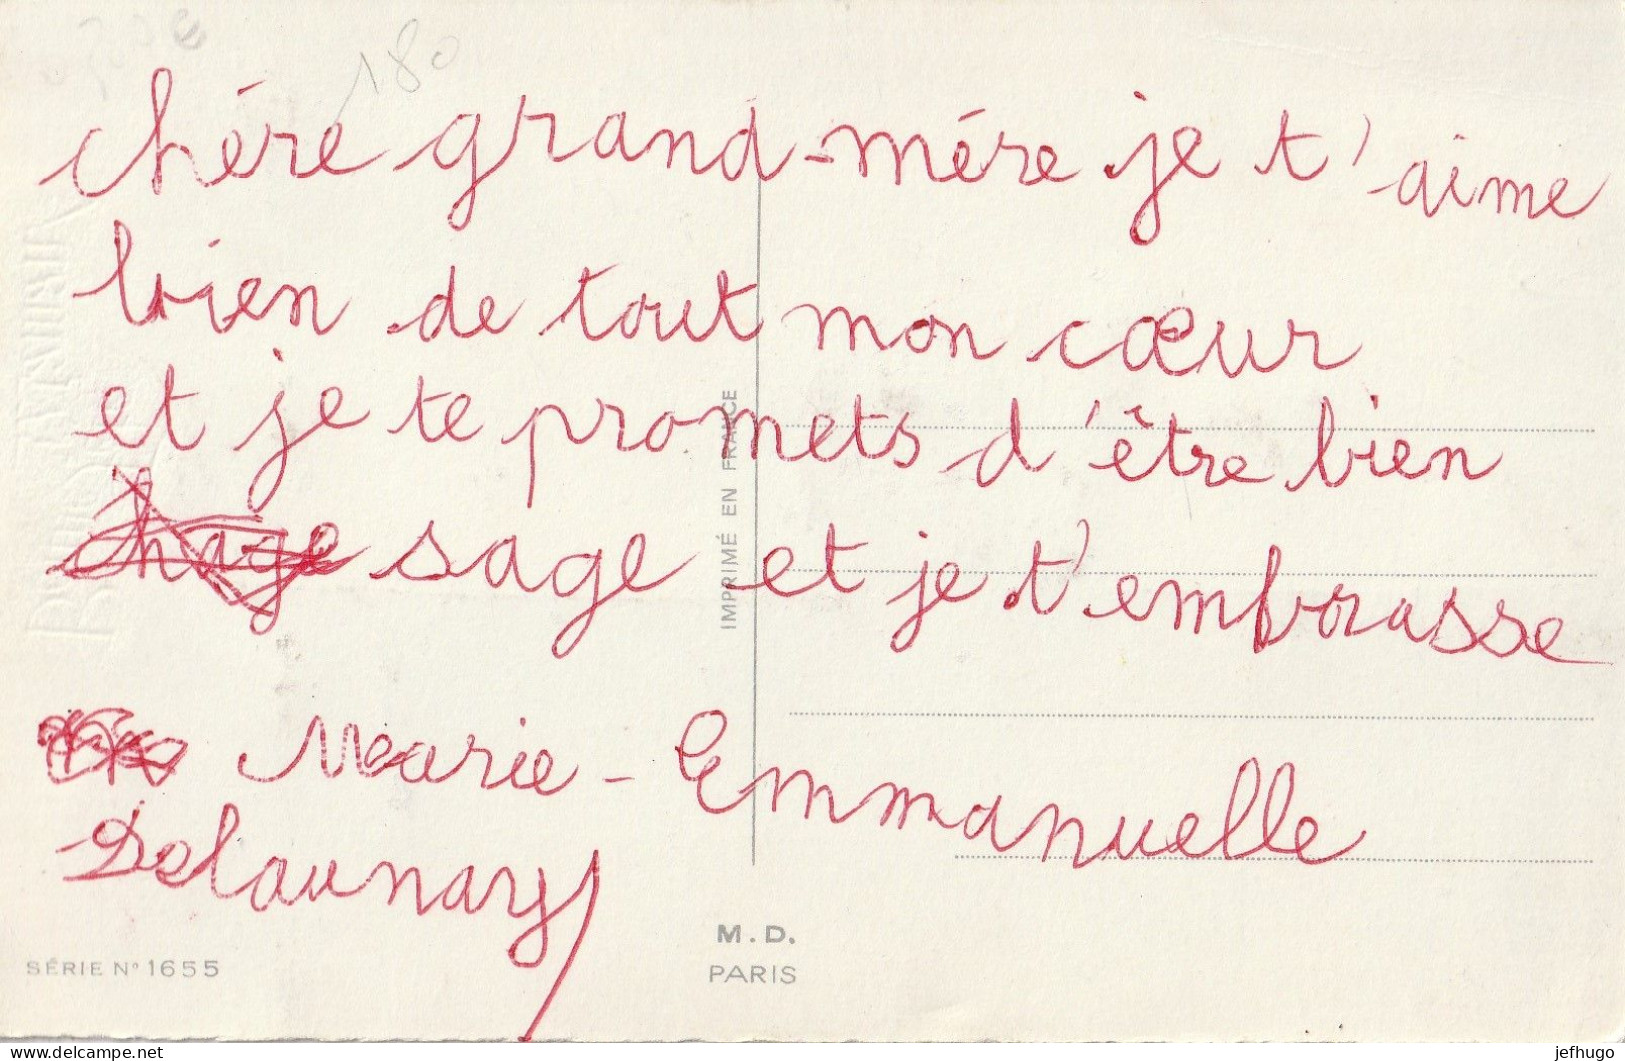 180
chére grand-mére je t'aime
bien de tout mon cœur
et je te promets d'être bien
sage et je t'embrasse
Marie-Emmanuelle
Delaunay
IMPRIMÉ EN FRANCE
M. D.
PARIS
SÉRIE N° 1655
delcampe.net
jefhugo